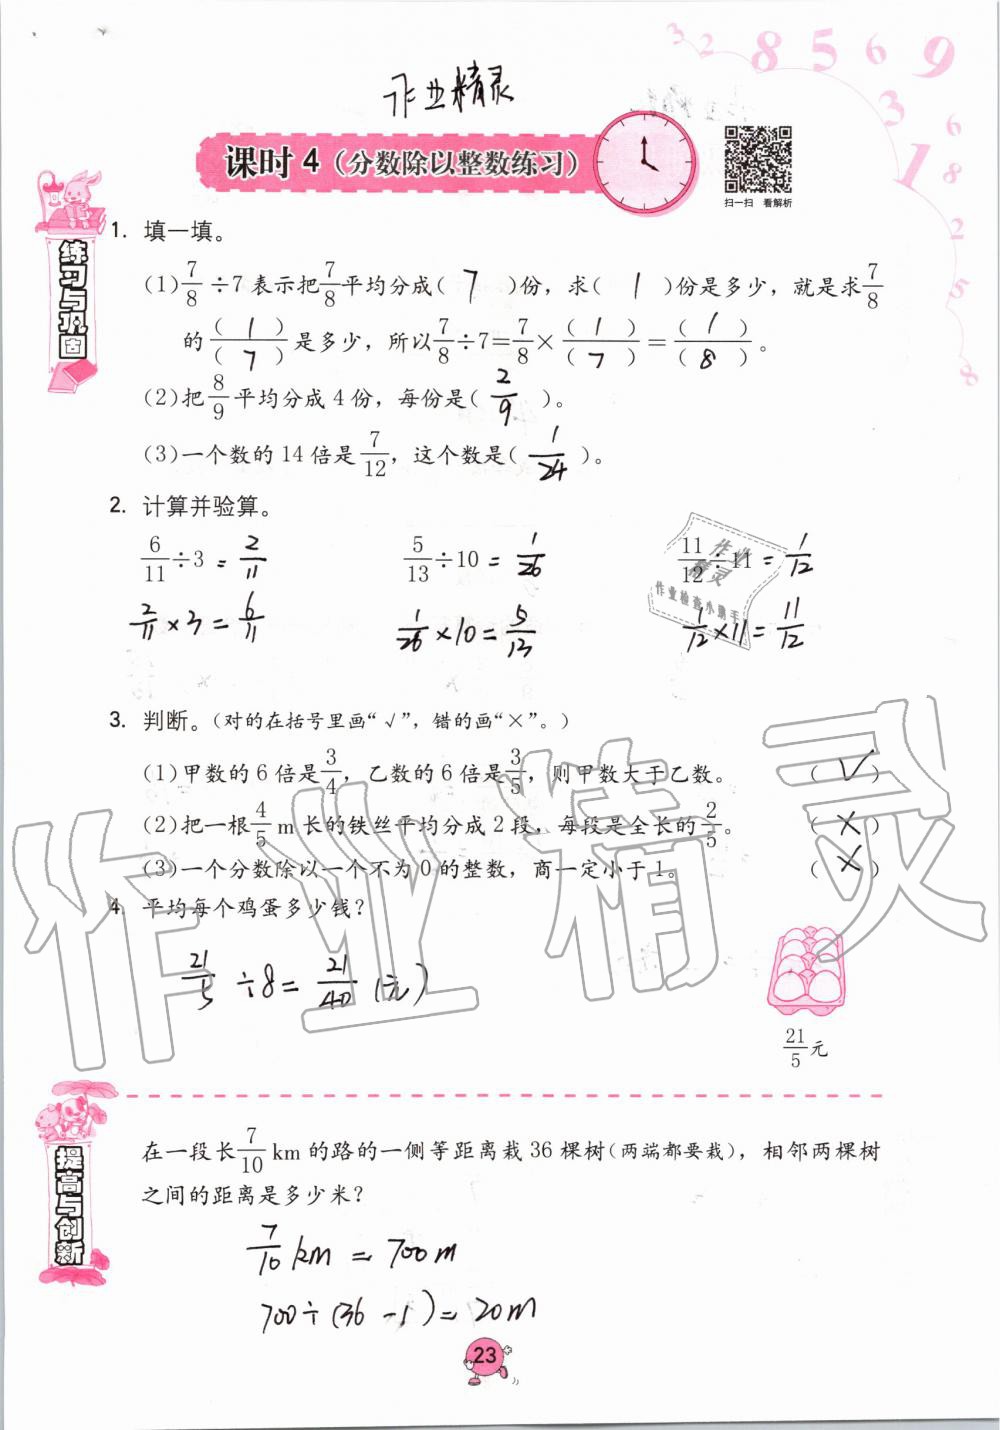 3 2 8 5 6 9 3 6 1 8 2 5 3 8
作业精灵
课时4（分数除以整数练习）
扫一扫 看解析
练习与巩固
1. 填一填。
(1) 7/8 ÷7 表示把 7/8 平均分成( 7 )份，求( 1 )份是多少，就是求 7/8
的 ( 1 )/( 7 ) 是多少，所以 7/8 ÷7= 7/8 × ( 1 )/( 7 ) = ( 1 )/( 8 )。
(2)把 8/9 平均分成 4 份，每份是( 2/9 )。
(3)一个数的 14 倍是 7/12，这个数是( 1/24 )。
2. 计算并验算。
6/11 ÷3 = 2/11 5/13 ÷10 = 1/26 11/12 ÷11 = 1/12
2/11 ×3 = 6/11 1/26 ×10 = 5/13 1/12 ×11 = 11/12
作业精灵
作业检查小助手
3. 判断。(对的在括号里画“√”，错的画“×”。)
(1)甲数的 6 倍是 3/4，乙数的 6 倍是 3/5，则甲数大于乙数。 ( √ )
(2)把一根 4/5 m 长的铁丝平均分成 2 段，每段是全长的 2/5。 ( × )
(3)一个分数除以一个不为 0 的整数，商一定小于 1。 ( × )
4. 平均每个鸡蛋多少钱？
21/5 ÷8 = 21/40 (元)
21/5 元
作业精灵
提高与创新
在一段长 7/10 km 的路的一侧等距离栽 36 棵树(两端都要栽)，相邻两棵树
之间的距离是多少米？
7/10 km = 700m
700÷(36-1)=20m
23